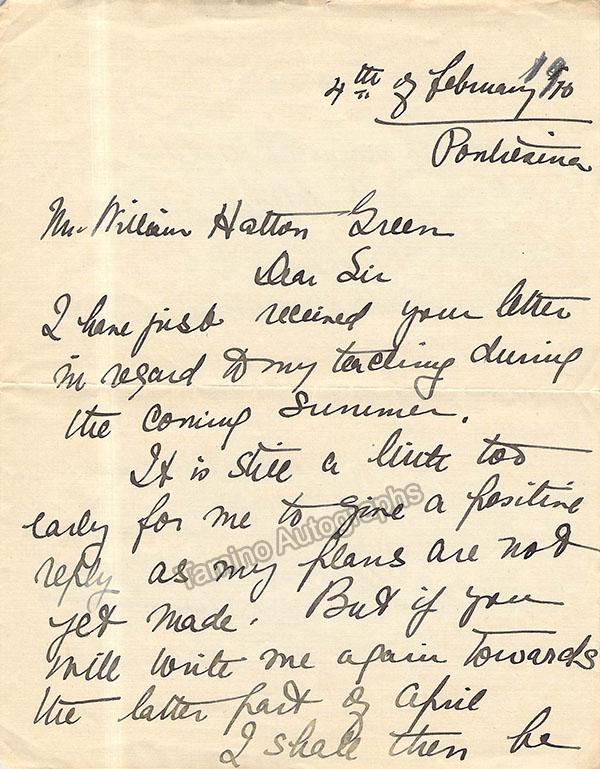 4th of February 1910
Pontresina
Mr. William Hatton Green
Dear Sir
I have just received your letter
in regard to my teaching during
the coming summer.
It is still a little too
early for me to give a positive
reply as my plans are not
yet made. But if you
will write me again towards
the latter part of April
I shall then be
Tamino Autographs